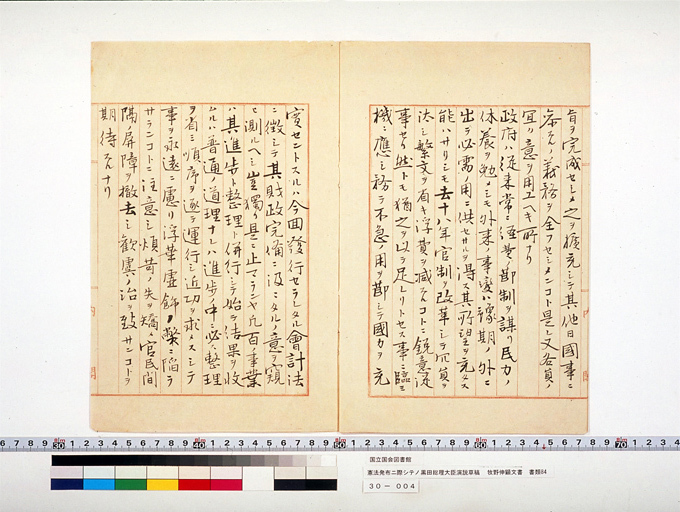 旨ヲ完成セシメ之ヲ擴充シテ其他日國事ニ
参スルノ義務ヲ全フセシメンコト是レ又各員ノ
宜ク意ヲ用ユヘキ所ナリ
政府ハ従来常ニ経費ノ節制ヲ謀リ民力ノ
休養ヲ勉メシモ外来ノ事変ハ豫期ノ外ニ
出テ必需ノ用ニ供セサルヲ得ス其所望ヲ充タス
能ハサリシモ去十八年官制ヲ改革シテ冗員ヲ
汰シ繁文ヲ省キ浮費ヲ減スルコトニ鋭意従
事セリ然トモ猶之ヲ以テ足レリトセス事ニ臨ミ
機ニ應シ務テ不急ノ用ヲ節シテ國力ヲ充
実セントスルハ今回發行セラレタル會計法
ニ徴シテ其財政完備ニ汲々タルノ意ヲ窺
ヒ測ルヘシ豈獨リ是ニ止マランヤ凡百ノ事業
ハ其進歩ト整理ト併行シテ始テ結果ヲ収
ムルハ普通ノ道理ナレハ進歩ノ中ニ必ス整理
ヲ省ミ順序ヲ逐テ運行シ近功ヲ求メスシテ
事ヲ永遠ニ慮リ浮華虚飾ノ弊ニ陥ラ
サランコトニ注意シ煩苛ノ失ヲ矯メ官民間
隔ノ屏障ヲ撤去シ歓虞ノ治ヲ致サンコトヲ
期待スルナリ
内
閣
国立国会図書館
憲法発布ニ際シテノ黒田総理大臣演説草稿 牧野伸顕文書 書類84
30－004